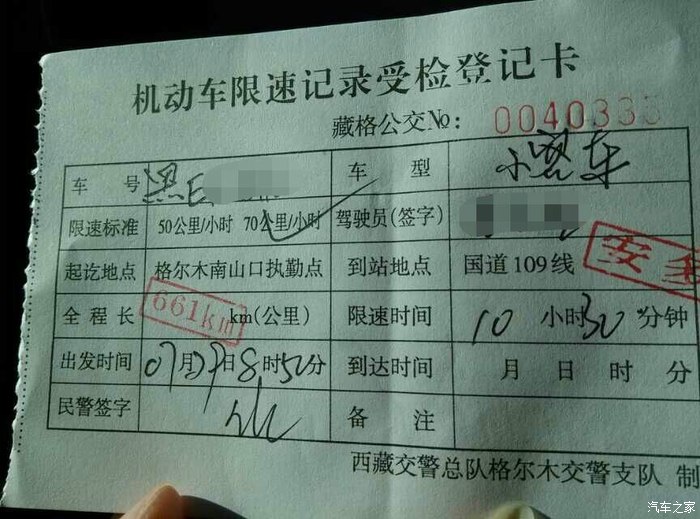 机动车限速记录受检登记卡
藏格公交№: 0040335
车 号 黑E 车 型 小客车
限速标准 50公里/小时 70公里/小时 驾驶员(签字)
起讫地点 格尔木南山口执勤点 到站地点 国道109线 安全
全 程 长 661km km(公里) 限速时间 10 小时 30 分钟
出发时间 07月29日8时50分 到达时间 月 日 时 分
民警签字 备 注
西藏交警总队格尔木交警支队 制
汽车之家